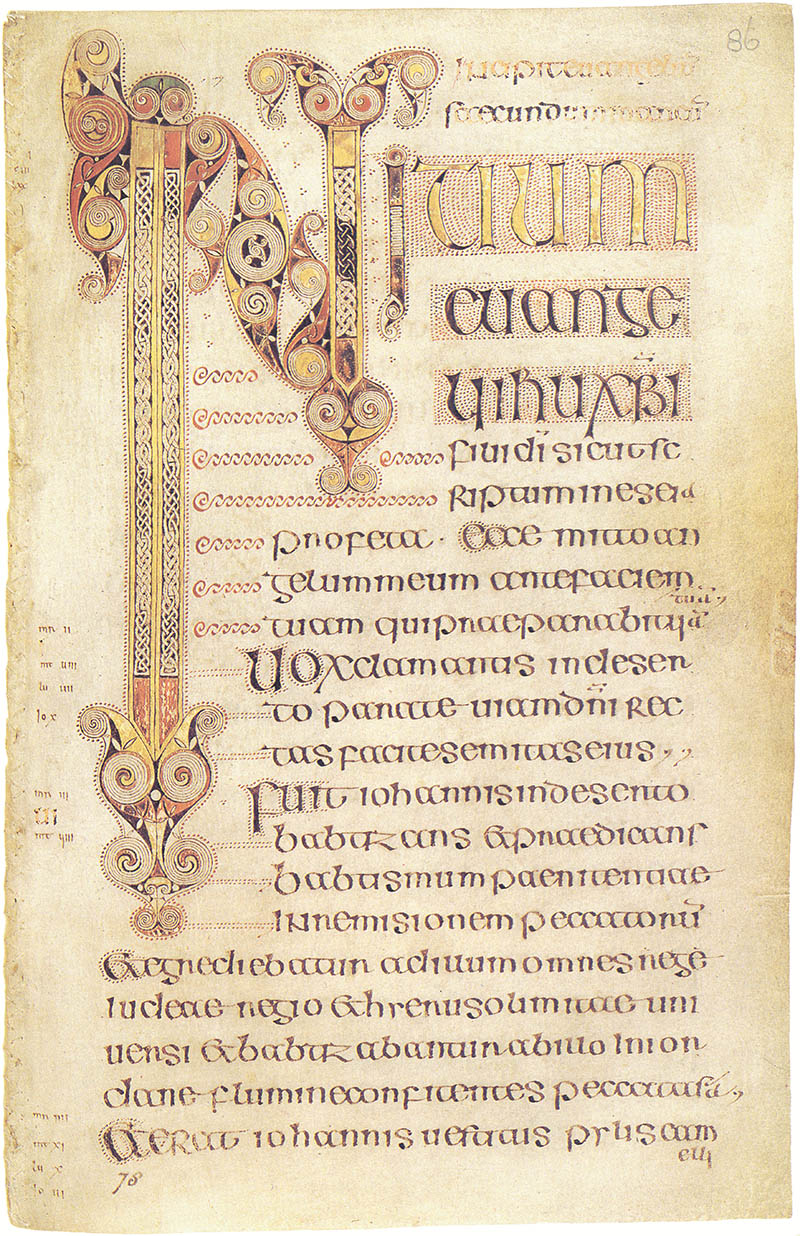 86
secundum
INITIUM
euange
lii ihu xp̄i
fili di̅ sicut sc
riptum in eseia
profeta · Ecce mitto an
gelum meum ante faciem
tuā
tuam qui praeparabit uiā
uox clamantis in deser
to parate uiam dn̄i rec
tas facite semitas eius
fuit iohannis in deserto
babtizans & praedicans
babtismum paenitentiae
in remisionem peccatorū
&egrediebatur ad illum omnes rege
iudeae regio & hierusolimitae uni
uersi & babtizabantur ab illo in ior
dane flumine confitentes peccata sā
&erat iohannis uestitus pylis cam
elli
mr ii
mt uiii
lu iiii
io x
mr iii
78